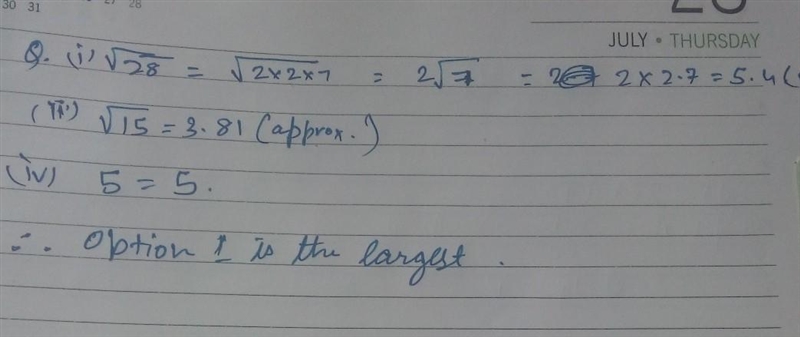 30 31
27 28
JULY • THURSDAY
Q. (i) √28 = √2×2×7 = 2√7 = 2 2×2.7=5.4(
(ii) √15 = 3.81 (approx.)
(iv) 5 = 5.
∴ Option 1 is the largest.